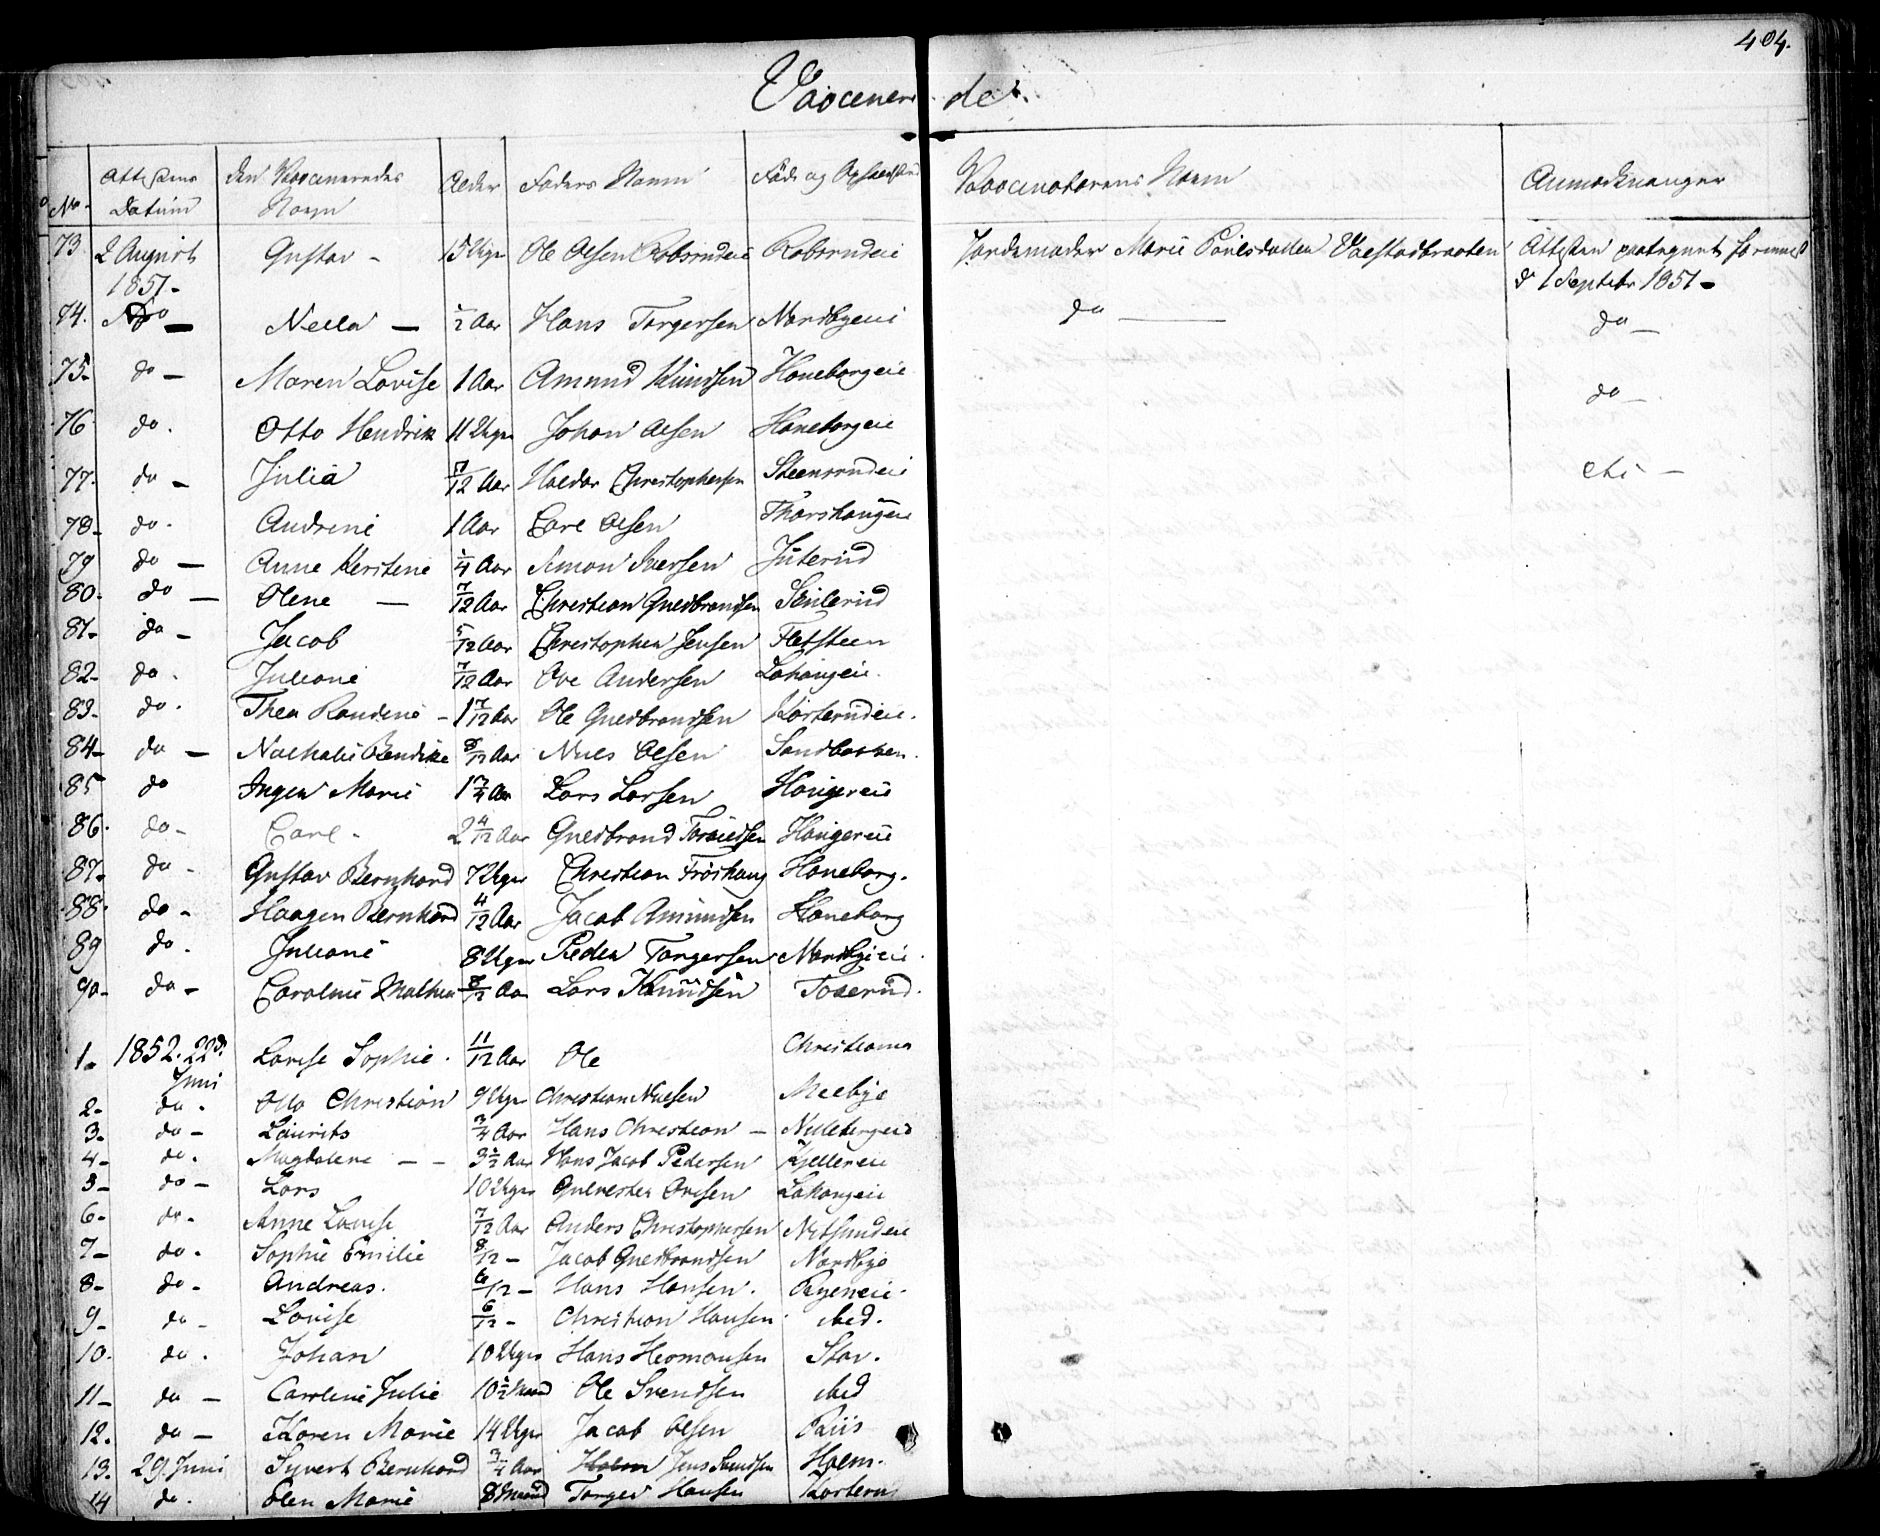 404.
Vaccinerede.
No. Attestens Datum den Vaccineredes Navn Alder Faders Navn Føde og Opholdssted Vaccinatorens Navn Anmærkninger
73. 2 August 1851- Gustav - 15 Uger Ole Olsen Robsrudeie Robsrudeie Jordemoder Marie Poulsdatter Attesten paategnet
d 1 Septebr 1851-
74. do - Nella - 1/2 Aar Hans Torgersen Nordbyeeie do - do -
75- do - Maren Lovise 1 Aar Amund Knudsen Haneborgeie do -
76 do. Otto Hendrik 11 Uger Johan Olsen Haneborgeie
77. do - Julia 7/12 Aar Haldor Christophersen Steensrudeie
78- do. Andrine 1 Aar Carl Olsen Thorshaugeie
79 do - Anne Kerstine 1/4 Aar Simon Iversen Juterud
80. do - Olene - 7/12 Aar Christian Guldbrandsen
81- do - Jacob 5/12 Aar Christopher Jensen Fletsteen
82- do. Juliane 7/12 Aar Ove Andersen Lahaugeie.
83. do. Thea Randine - 1 7/12 Aar Ole Guldbrandsen Kårterudeie.
84- do - Nathalie Bendikte 8/12 Aar Niels Olsen Sandbakken.
85 do Inger Marie 1 3/4 Aar Lars Larsen Haugereie
86. do- Carl - 2 4/12 Aar Guldbrand Haugereie
87. do - Gustav Bernhard 7 Uger Christian Fröshaug Haneborg.
88. do - Haagen Bernhard 4/12 Aar Jacob Amundsen Haneborg
89 do. Juliane 8 Uger Peder Torgersen Nordbyeie.
90- do - Caroline Mathea 8/12 Aar Lars Knudsen
1. 1852. 22d. Juni Lovise Sophie. 11/12 Aar Ole Christiania
2- do. Otto Christian 9 Uger Christian Nielsen Mellbye
3- do - Laurits 3/4 Aar Hans Christian -
4- do. Magdalene - - 3 1/2 Aar Hans Jacob Pedersen Kjellereie
5- do - Lars 10 Uger Lahaugeie
6- do. Anne Lovise 7/12 Aar Anders Christophersen Nitsundeie
7- do. Sophie Emilie 8/12 - Jacob Guldbrandsen Nordbye
8- do - Andreas. 6/12 - Hans Hansen. Ryeneie.
9- do - Lovise 6/12 - Christian Hansen. ibid.
10. do. Johan 10 Uger Hans Hermansen Stav.
11- do - Caroline Julie 10 1/2 Maaned Ole Svendsen ibid
12. do - Karen Marie 14 Uger Jacob Olsen Riis
13. 29. Juni Syvert Bernhard 3/4 Aar Holm.
14 do. Elen Marie 8 Maaned Torger Hansen Korterud